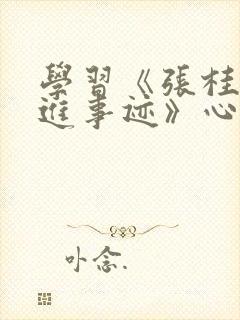 學習《張桂
進事迹》心
卟念.